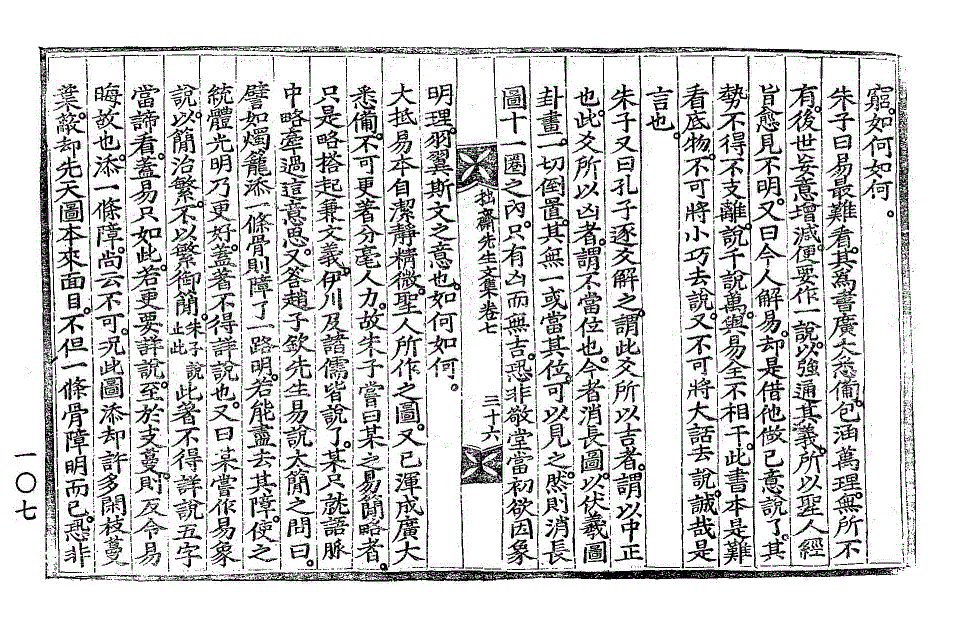 窮。如何如何。
朱子曰易最難看。其爲書廣大悉備。包涵萬理。無所不
有。後世妄意增減。便要作一說。以強通其義。所以聖人經
旨愈見不明。又曰今人解易。却是借他做己意說了。其
勢不得不支離。說千說萬。與易全不相干。此書本是難
看底物。不可將小巧去說。又不可將大話去說。誠哉是
言也。
朱子又曰孔子逐爻解之。謂此爻所以吉者。謂以中正
也。此爻所以凶者。謂不當位也。今者消長圖。以伏羲圖
卦畫。一切倒置。其無一或當其位。可以見之。然則消長
圖十一圈之內。只有凶而無吉。恐非敬堂當初欲因象
拙齋先生文集卷七
三十六
明理。羽翼斯文之意也。如何如何。
大抵易本自潔靜精微。聖人所作之圖。又已渾成廣大
悉備。不可更著分毫人力。故朱子嘗曰某之易簡略者。
只是略搭起兼文義。伊川及諸儒皆說了。某只就語脈
中略牽過這意思。又答趙子欽先生易說太簡之問曰。
譬如燭籠添一條骨則障了一路明。若能盡去其障。使之
統體光明乃更好。蓋著不得詳說也。又曰某嘗作易象
說。以簡治繁。不以繁御簡。朱子說止此 此著不得詳說五字
當諦看。蓋易只如此。若更要詳說。至於支蔓。則反令易
晦故也。添一條障。尚云不可。況此圖添却許多閒枝蔓
葉。蔽却先天圖本來面目。不但一條骨障明而已。恐非
一〇七